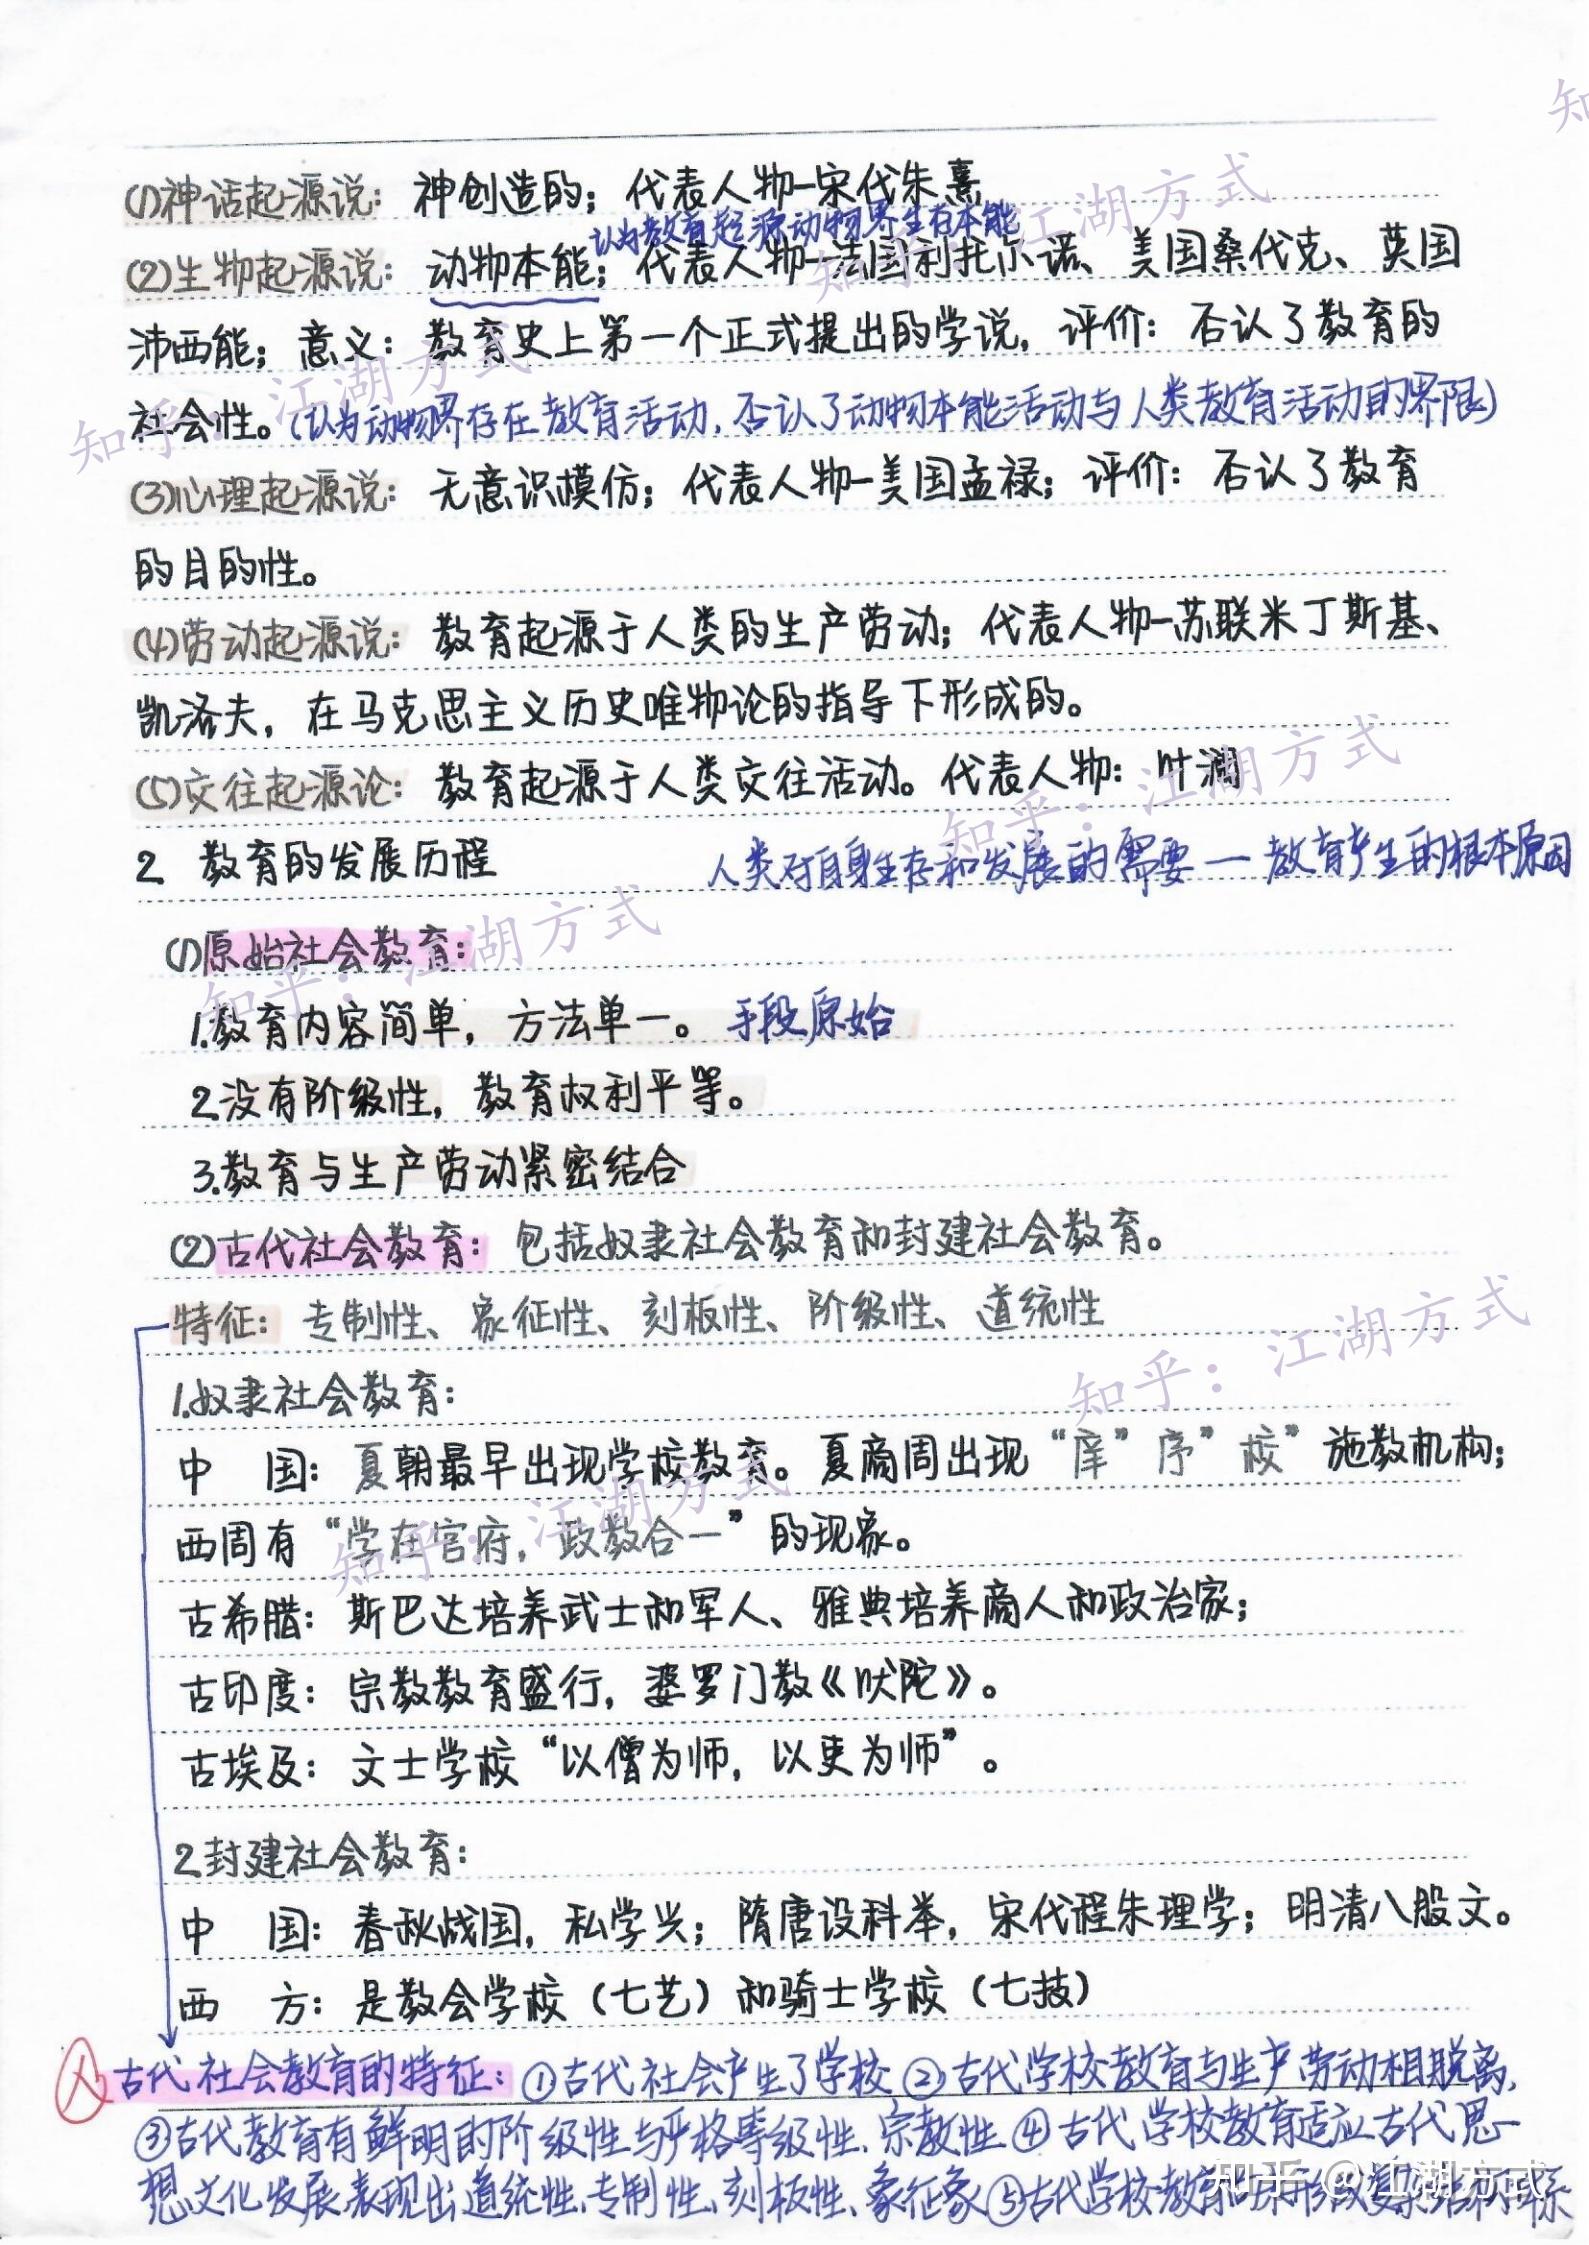 (1)神话起源说：神创造的；代表人物-宋代朱熹
认为教育起源动物界生存本能
(2)生物起源说：动物本能；代表人物-法国利托尔诺、美国桑代克、英国
沛西能；意义：教育史上第一个正式提出的学说，评价：否认了教育的
社会性。(认为动物界存在教育活动，否认了动物本能活动与人类教育活动的界限)
(3)心理起源说：无意识模仿；代表人物-美国孟禄；评价：否认了教育
的目的性。
(4)劳动起源说：教育起源于人类的生产劳动；代表人物-苏联米丁斯基、
凯洛夫，在马克思主义历史唯物论的指导下形成的。
(5)交往起源论：教育起源于人类交往活动。代表人物：叶澜
2 教育的发展历程 人类对自身生存和发展的需要一教育产生的根本原因
(1)原始社会教育：
1.教育内容简单，方法单一。手段原始
2.没有阶级性，教育权利平等。
3.教育与生产劳动紧密结合
(2)古代社会教育：包括奴隶社会教育和封建社会教育。
特征：专制性、象征性、刻板性、阶级性、道统性
1.奴隶社会教育：
中 国：夏朝最早出现学校教育。夏商周出现“庠”序”校”施教机构；
西周有“学在官府，政教合一”的现象。
古希腊：斯巴达培养武士和军人、雅典培养商人和政治家；
古印度：宗教教育盛行，婆罗门教《吠陀》。
古埃及：文士学校“以僧为师，以吏为师”。
2.封建社会教育：
中 国：春秋战国，私学兴；隋唐设科举，宋代程朱理学；明清八股文。
西 方：是教会学校（七艺）和骑士学校（七技）
古代社会教育的特征：①古代社会产生了学校②古代学校教育与生产劳动相脱离，
③古代教育有鲜明的阶级性与严格等级性、宗教性④古代学校教育适应古代思
想文化发展表现出道统性、专制性、刻板性、象征象⑤古代学校教育
知乎 @江湖方式
知乎：江湖方式
知乎：江湖方式
知乎：江湖方式
知乎：江湖方式
知乎：江湖方式
知乎：江湖方式
知